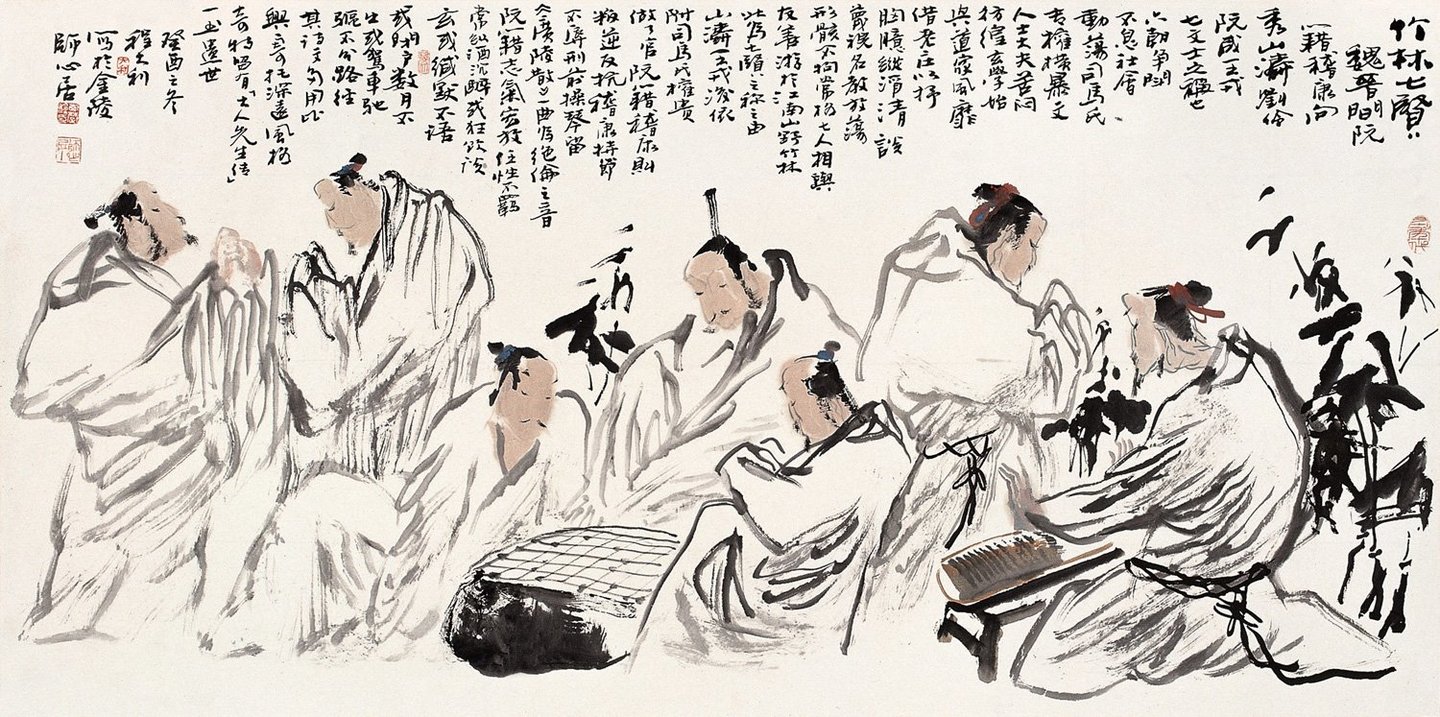 竹林七贤
魏晋间阮
籍嵇康向
秀山濤劉伶
阮咸王戎
七文士之稱也
六朝争鬥
不息社會
動蕩司馬氏
專權横暴文
人士大夫苦悶
彷徨玄學始
與道家風靡
借老莊以抒
胸臆縱浮清談
蔑視名教放蕩
形骸不拘常格七人相與
友善游於江南山野竹林
此为七賢之称之由
山濤王戎後依
附司馬氏權貴
做了官阮籍嵇康則
叛逆反抗嵇康持節
不辱刑前操琴留
《廣陵散》一曲为绝倫之音
阮籍志氣宏放任性不羈
常纵酒沉醉或狂欢談
玄或缄默不語
或閉户数月不
出或駕車馳
騁不分路徑
其詩文多用比
興寄托深遠風格
奇特留有「大人先生传」
一至遺世
癸酉之冬
程大利
寫於金陵
師心居